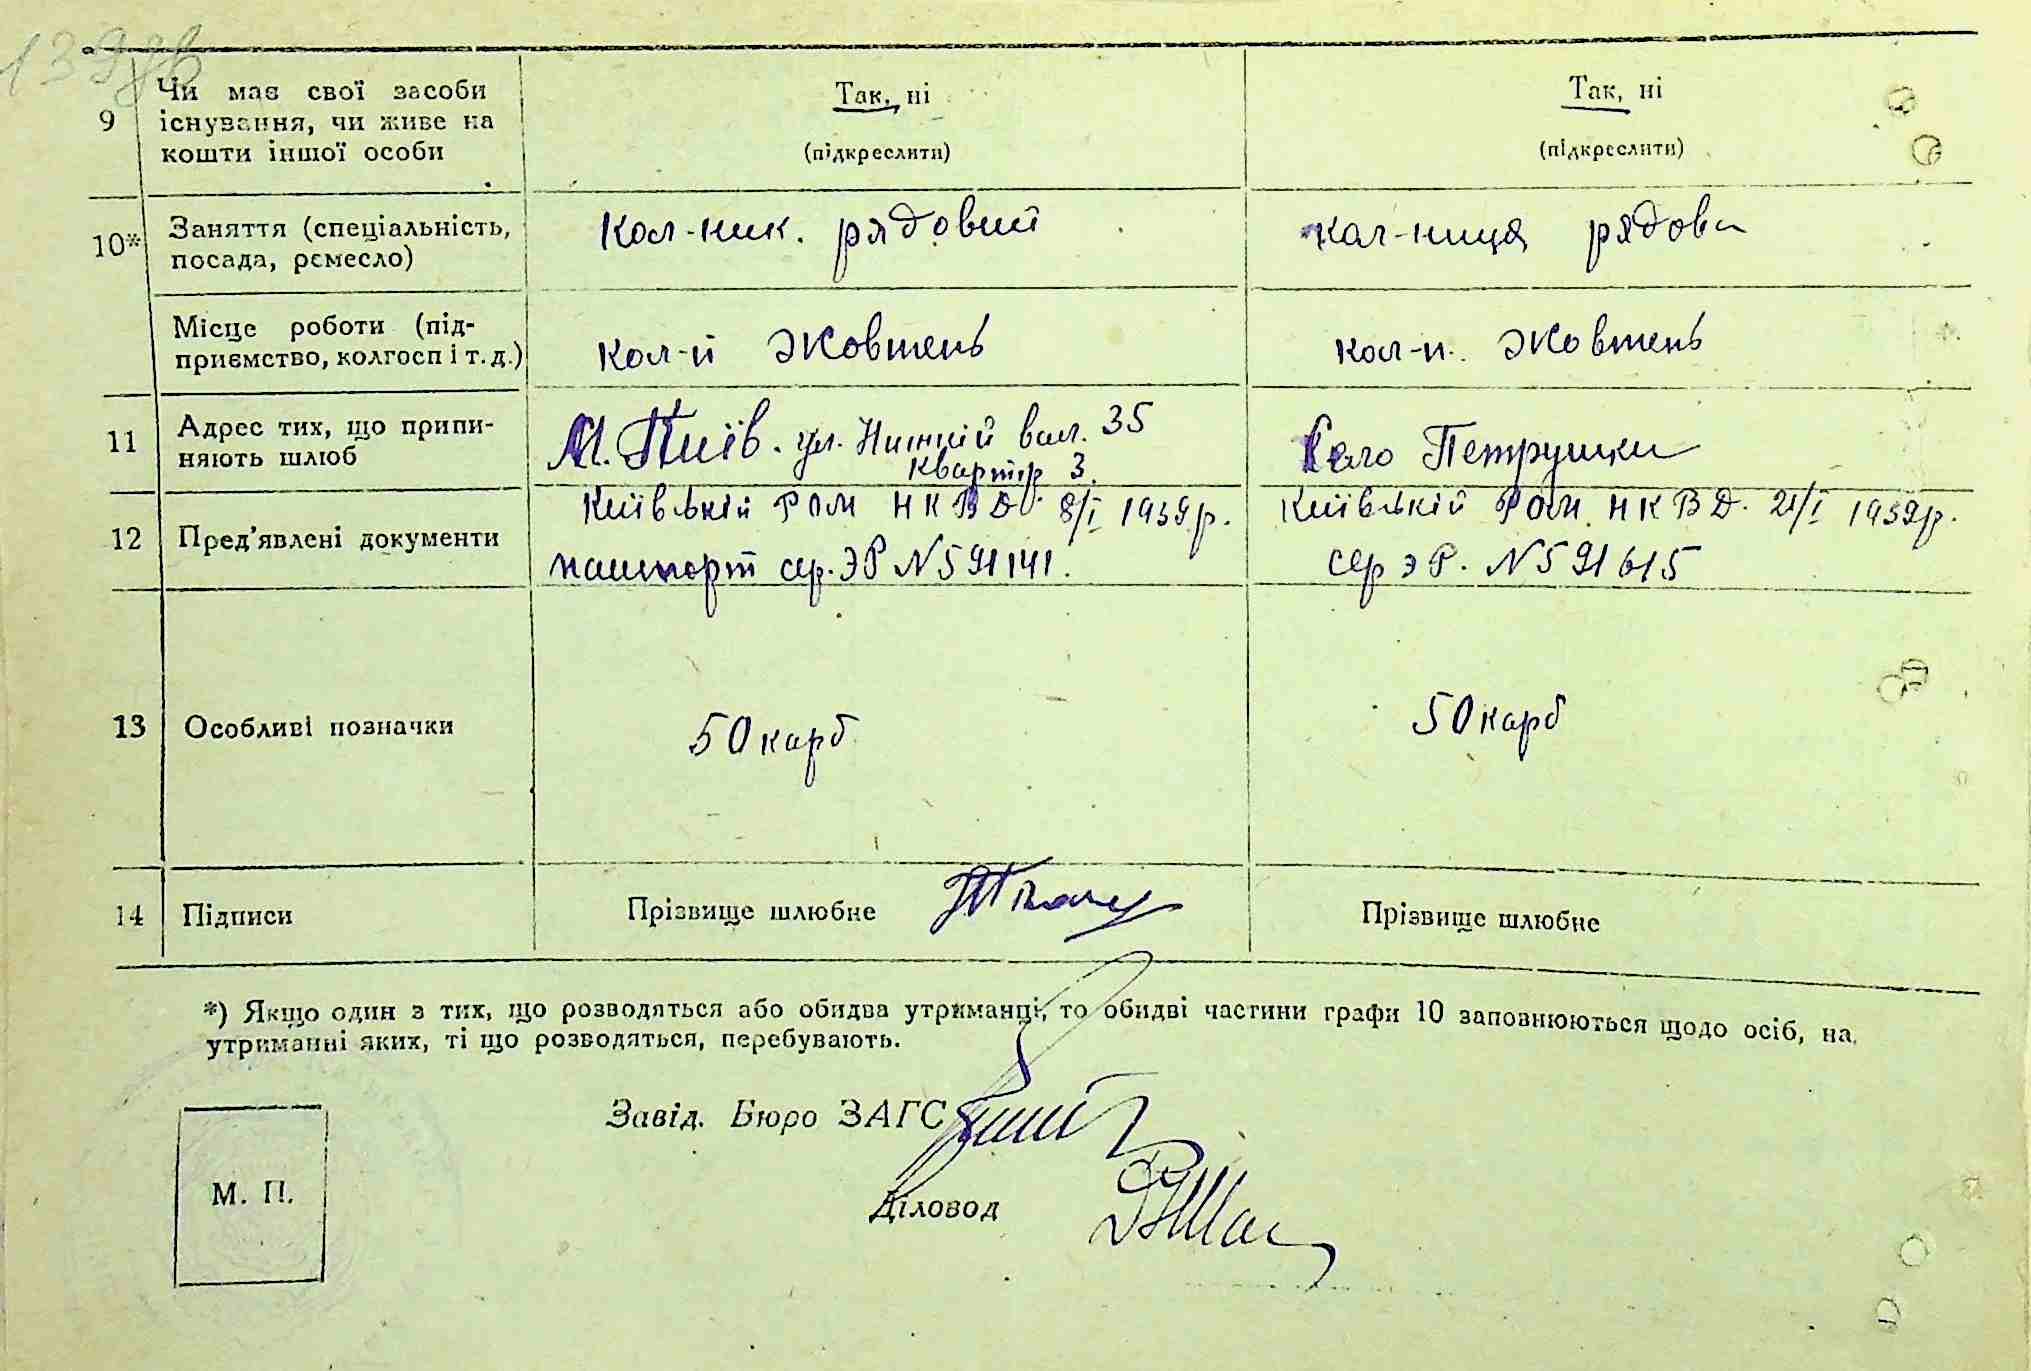 9
Чи має свої засоби
існування, чи живе на
кошти іншої особи
Так, ні
(підкреслити)
Так, ні
(підкреслити)
10*
Заняття (спеціальність,
посада, ремесло)
Кол-ник. рядовий
кол-ниця рядова
Місце роботи (під-
приємство, колгосп і т. д.)
кол-п Жовтень
кол-п. Жовтень
11
Адрес тих, що припи-
няють шлюб
М. Київ. ул. Нижній вал. 35
квартир 3.
Село Петрушки
12
Пред'явлені документи
Київській РОМ НКВД 8/I 1939р.
пашпорт сер. ЭР N591141.
Київській РОМ НКВД. 21/I 1939р.
сер ЭР. N591615
13
Особливі позначки
50 карб
50 карб
14
Підписи
Прізвище шлюбне
Прізвище шлюбне
*) Якщо один з тих, що розводяться або обидва утриманці, то обидві частини графи 10 заповнюються щодо осіб, на
утриманні яких, ті що розводяться, перебувають.
Завід. Бюро ЗАГС
Діловод
М. П.